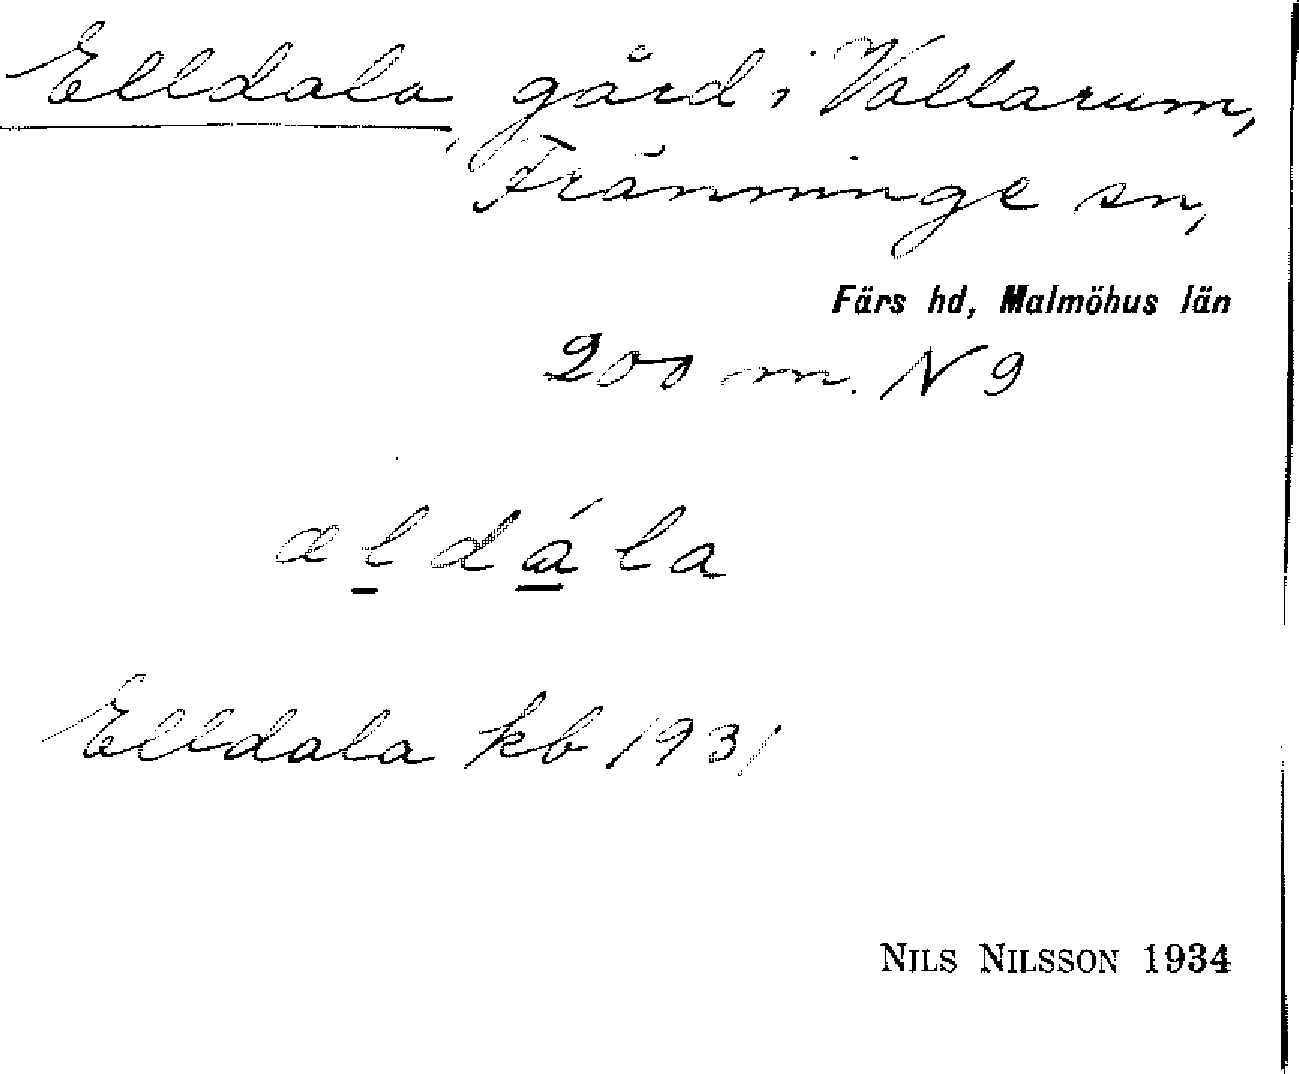 Elldala, gård i Vallarum,
Fränninge sn,
Färs hd, Malmöhus län
200 m. N 9
æl̠dá̠la
Elldala kb 1931
NILS NILSSON 1934